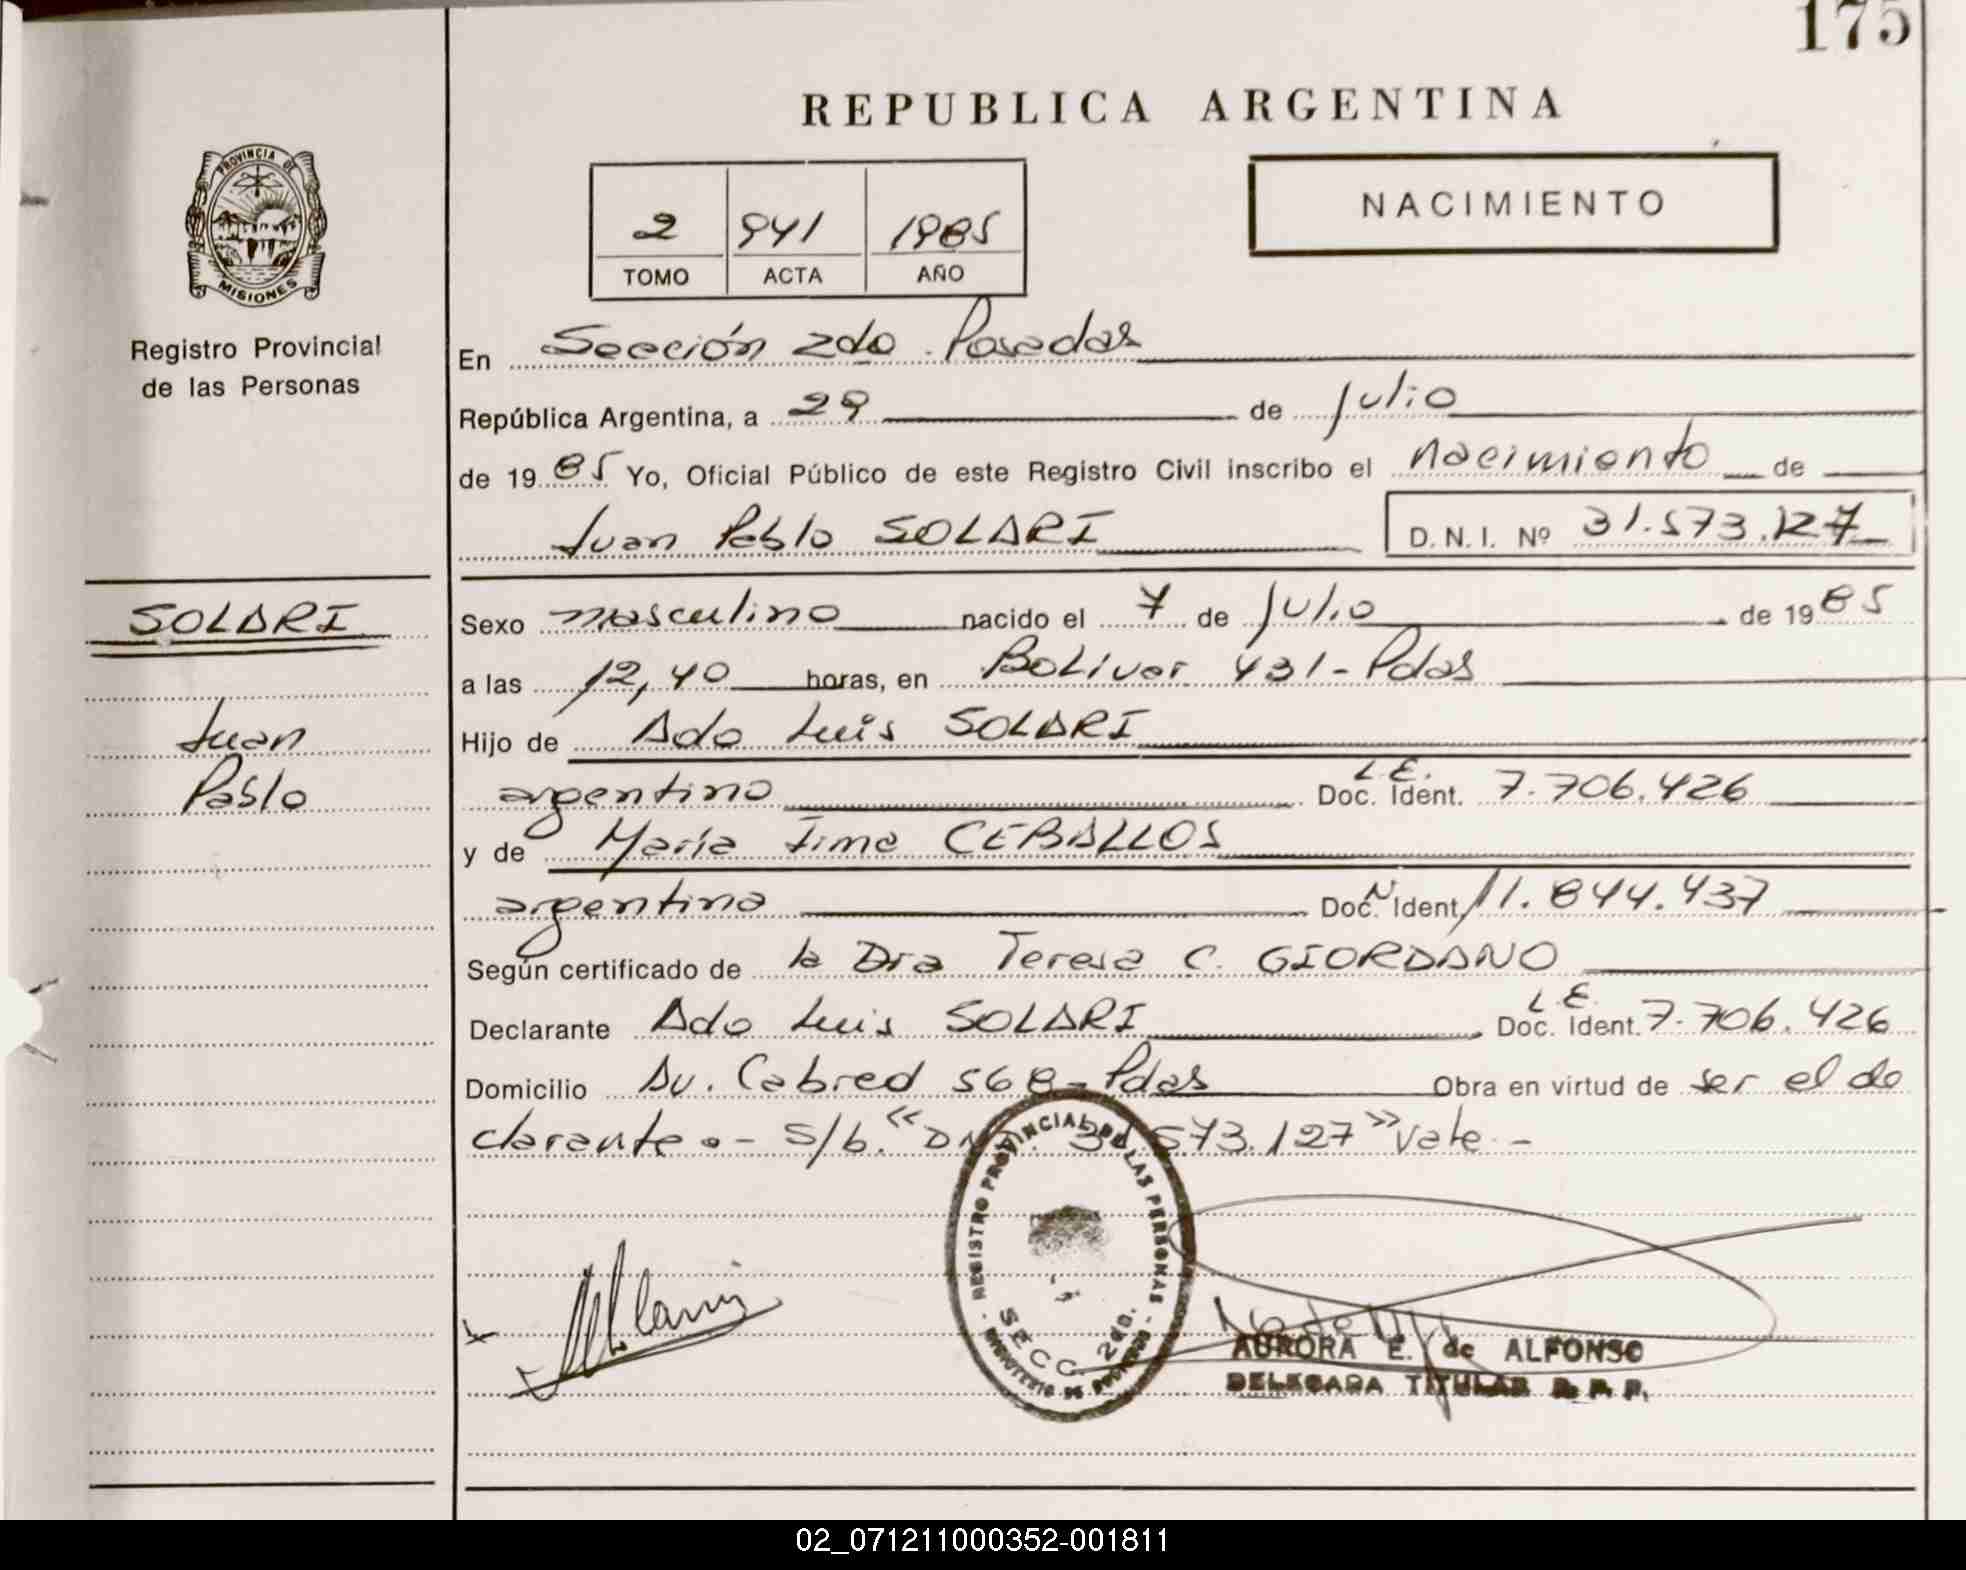 175
REPUBLICA ARGENTINA
PROVINCIA DE
MISIONES
Registro Provincial
de las Personas
2 941 1985
TOMO ACTA AÑO
NACIMIENTO
En Sección 2do Posadas
República Argentina, a 29 de Julio
de 1985 Yo, Oficial Público de este Registro Civil inscribo el nacimiento de
Juan Pablo SOLARI D. N. I. Nº 31.573.127
SOLARI
Juan
Pablo
Sexo masculino nacido el 7 de Julio de 1985
a las 12,40 horas, en Bolivar 431 - Pdas
Hijo de Ado Luis SOLARI
argentino L.E. Doc. Ident. 7.706.426
y de María CEBALLOS
argentina Doc. Ident. 11.844.437
Según certificado de la Dra Teresa C. GIORDANO
Declarante Ado Luis SOLARI L.E. Doc. Ident. 7.706.426
Domicilio Av. Cabred 568 - Pdas Obra en virtud de ser el de
clarante.- S/b. "DNI 31.573.127" Vale.-
REGISTRO PROVINCIAL DE LAS PERSONAS
SECC. 2DO.
AURORA E. de ALFONSO
DELEGADA TITULAR R. P. P.
02_071211000352-001811